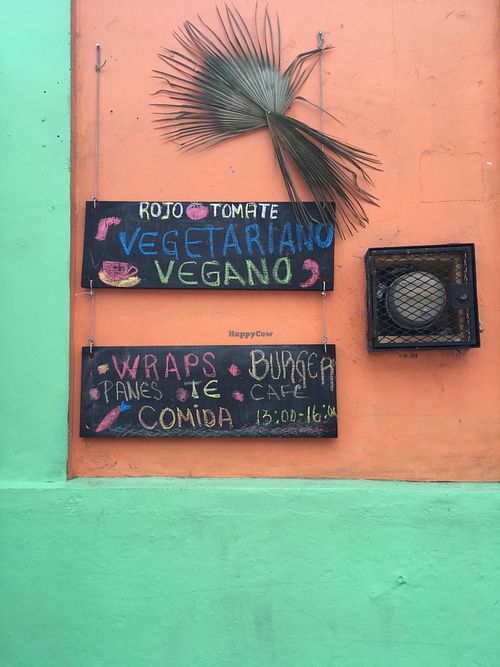 ROJO TOMATE
VEGETARIANO
VEGANO
HappyCow
WRAPS BURGER
PANES TE CAFE
COMIDA 13:00-16:00